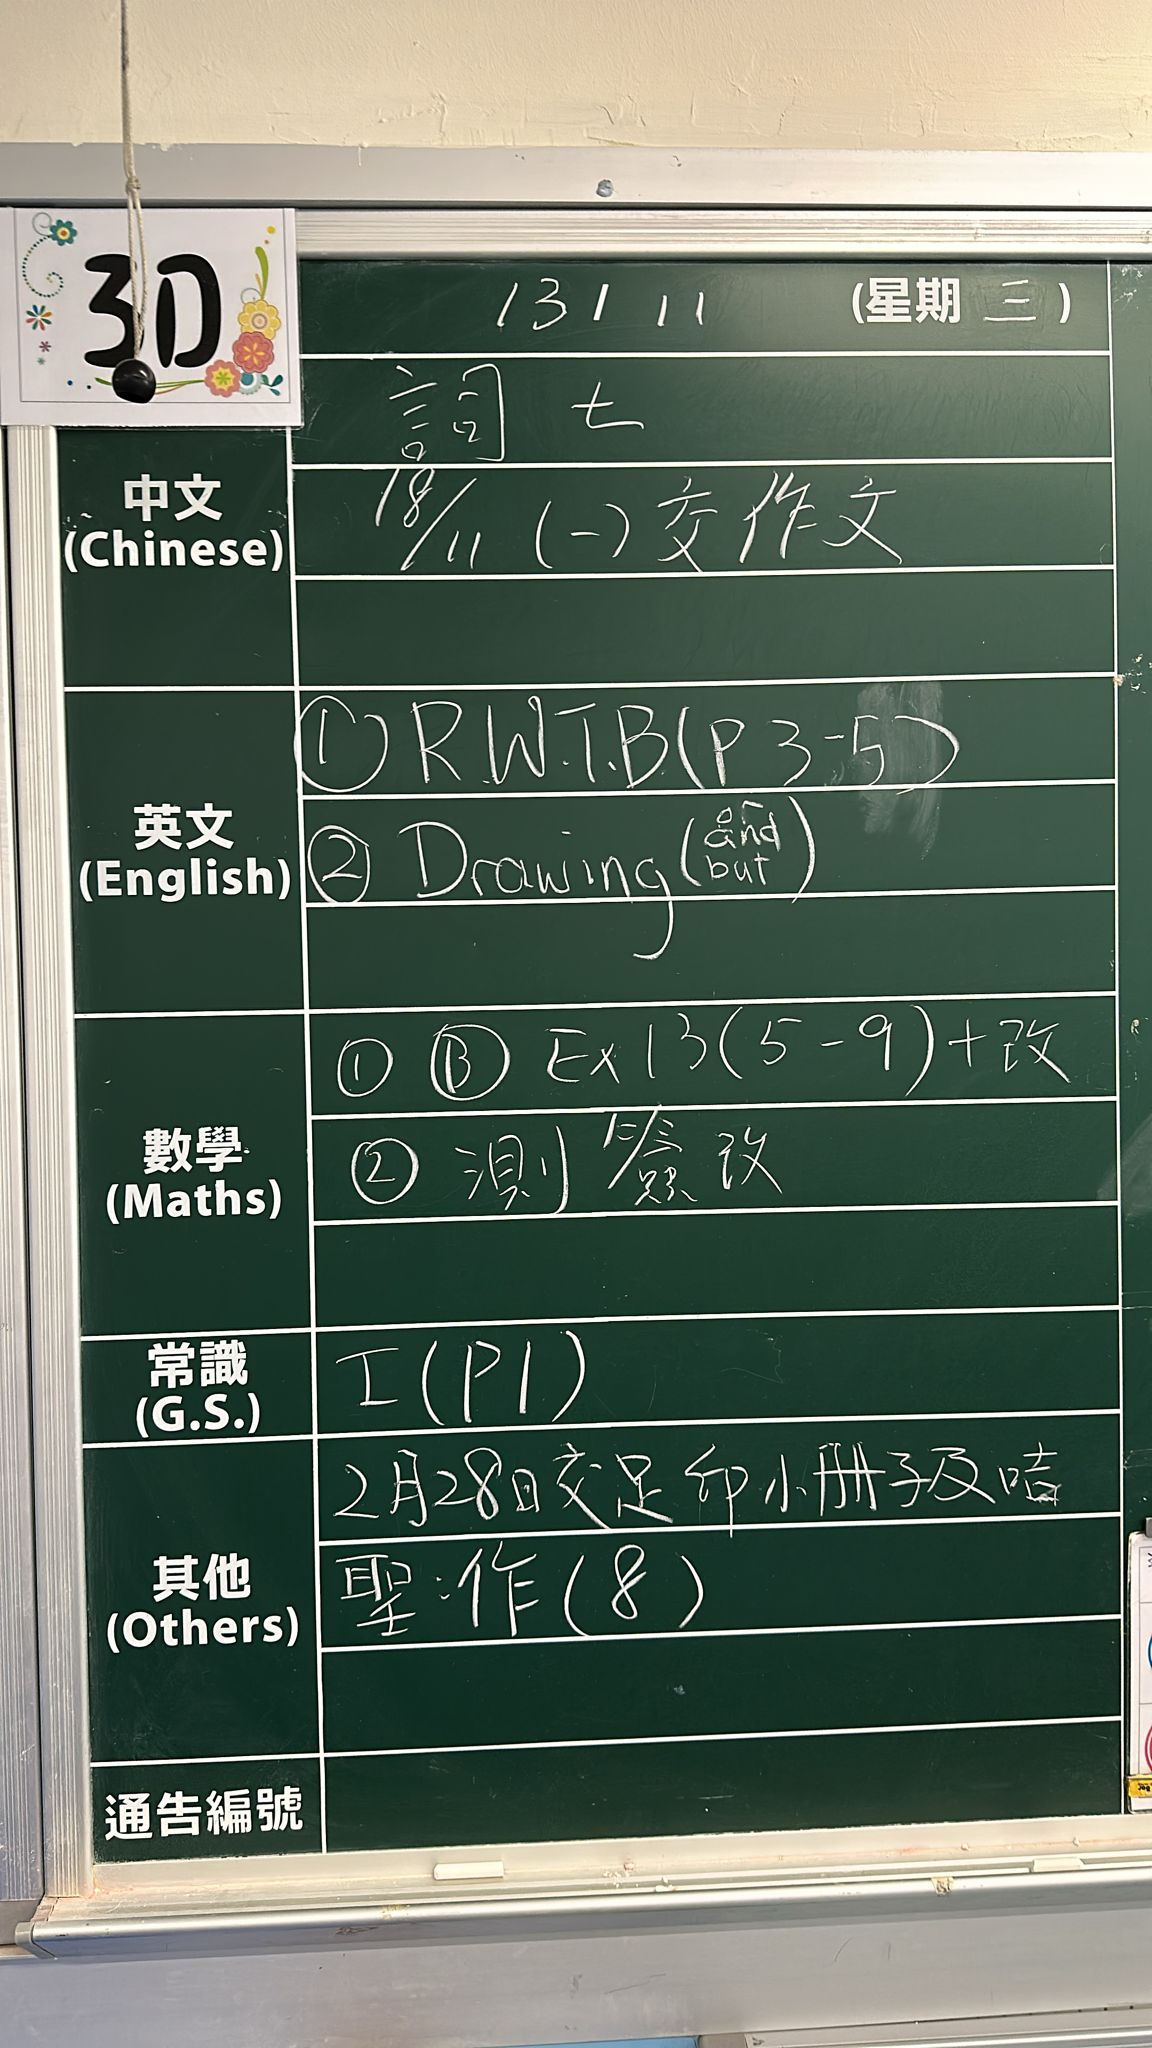 3D
13 / 11 (星期 三)
詞 七
中文
(Chinese)
18/11 (一) 交作文
① R.W.T.B.(P 3-5)
英文
(English)
② Drawing (and but)
① Ⓑ Ex 13 (5-9) +改
數學
(Maths)
② 測 簽 改
常識
(G.S.)
I (P1)
2月28日交足印小冊子及咭
其他
(Others)
聖:作(8)
通告編號